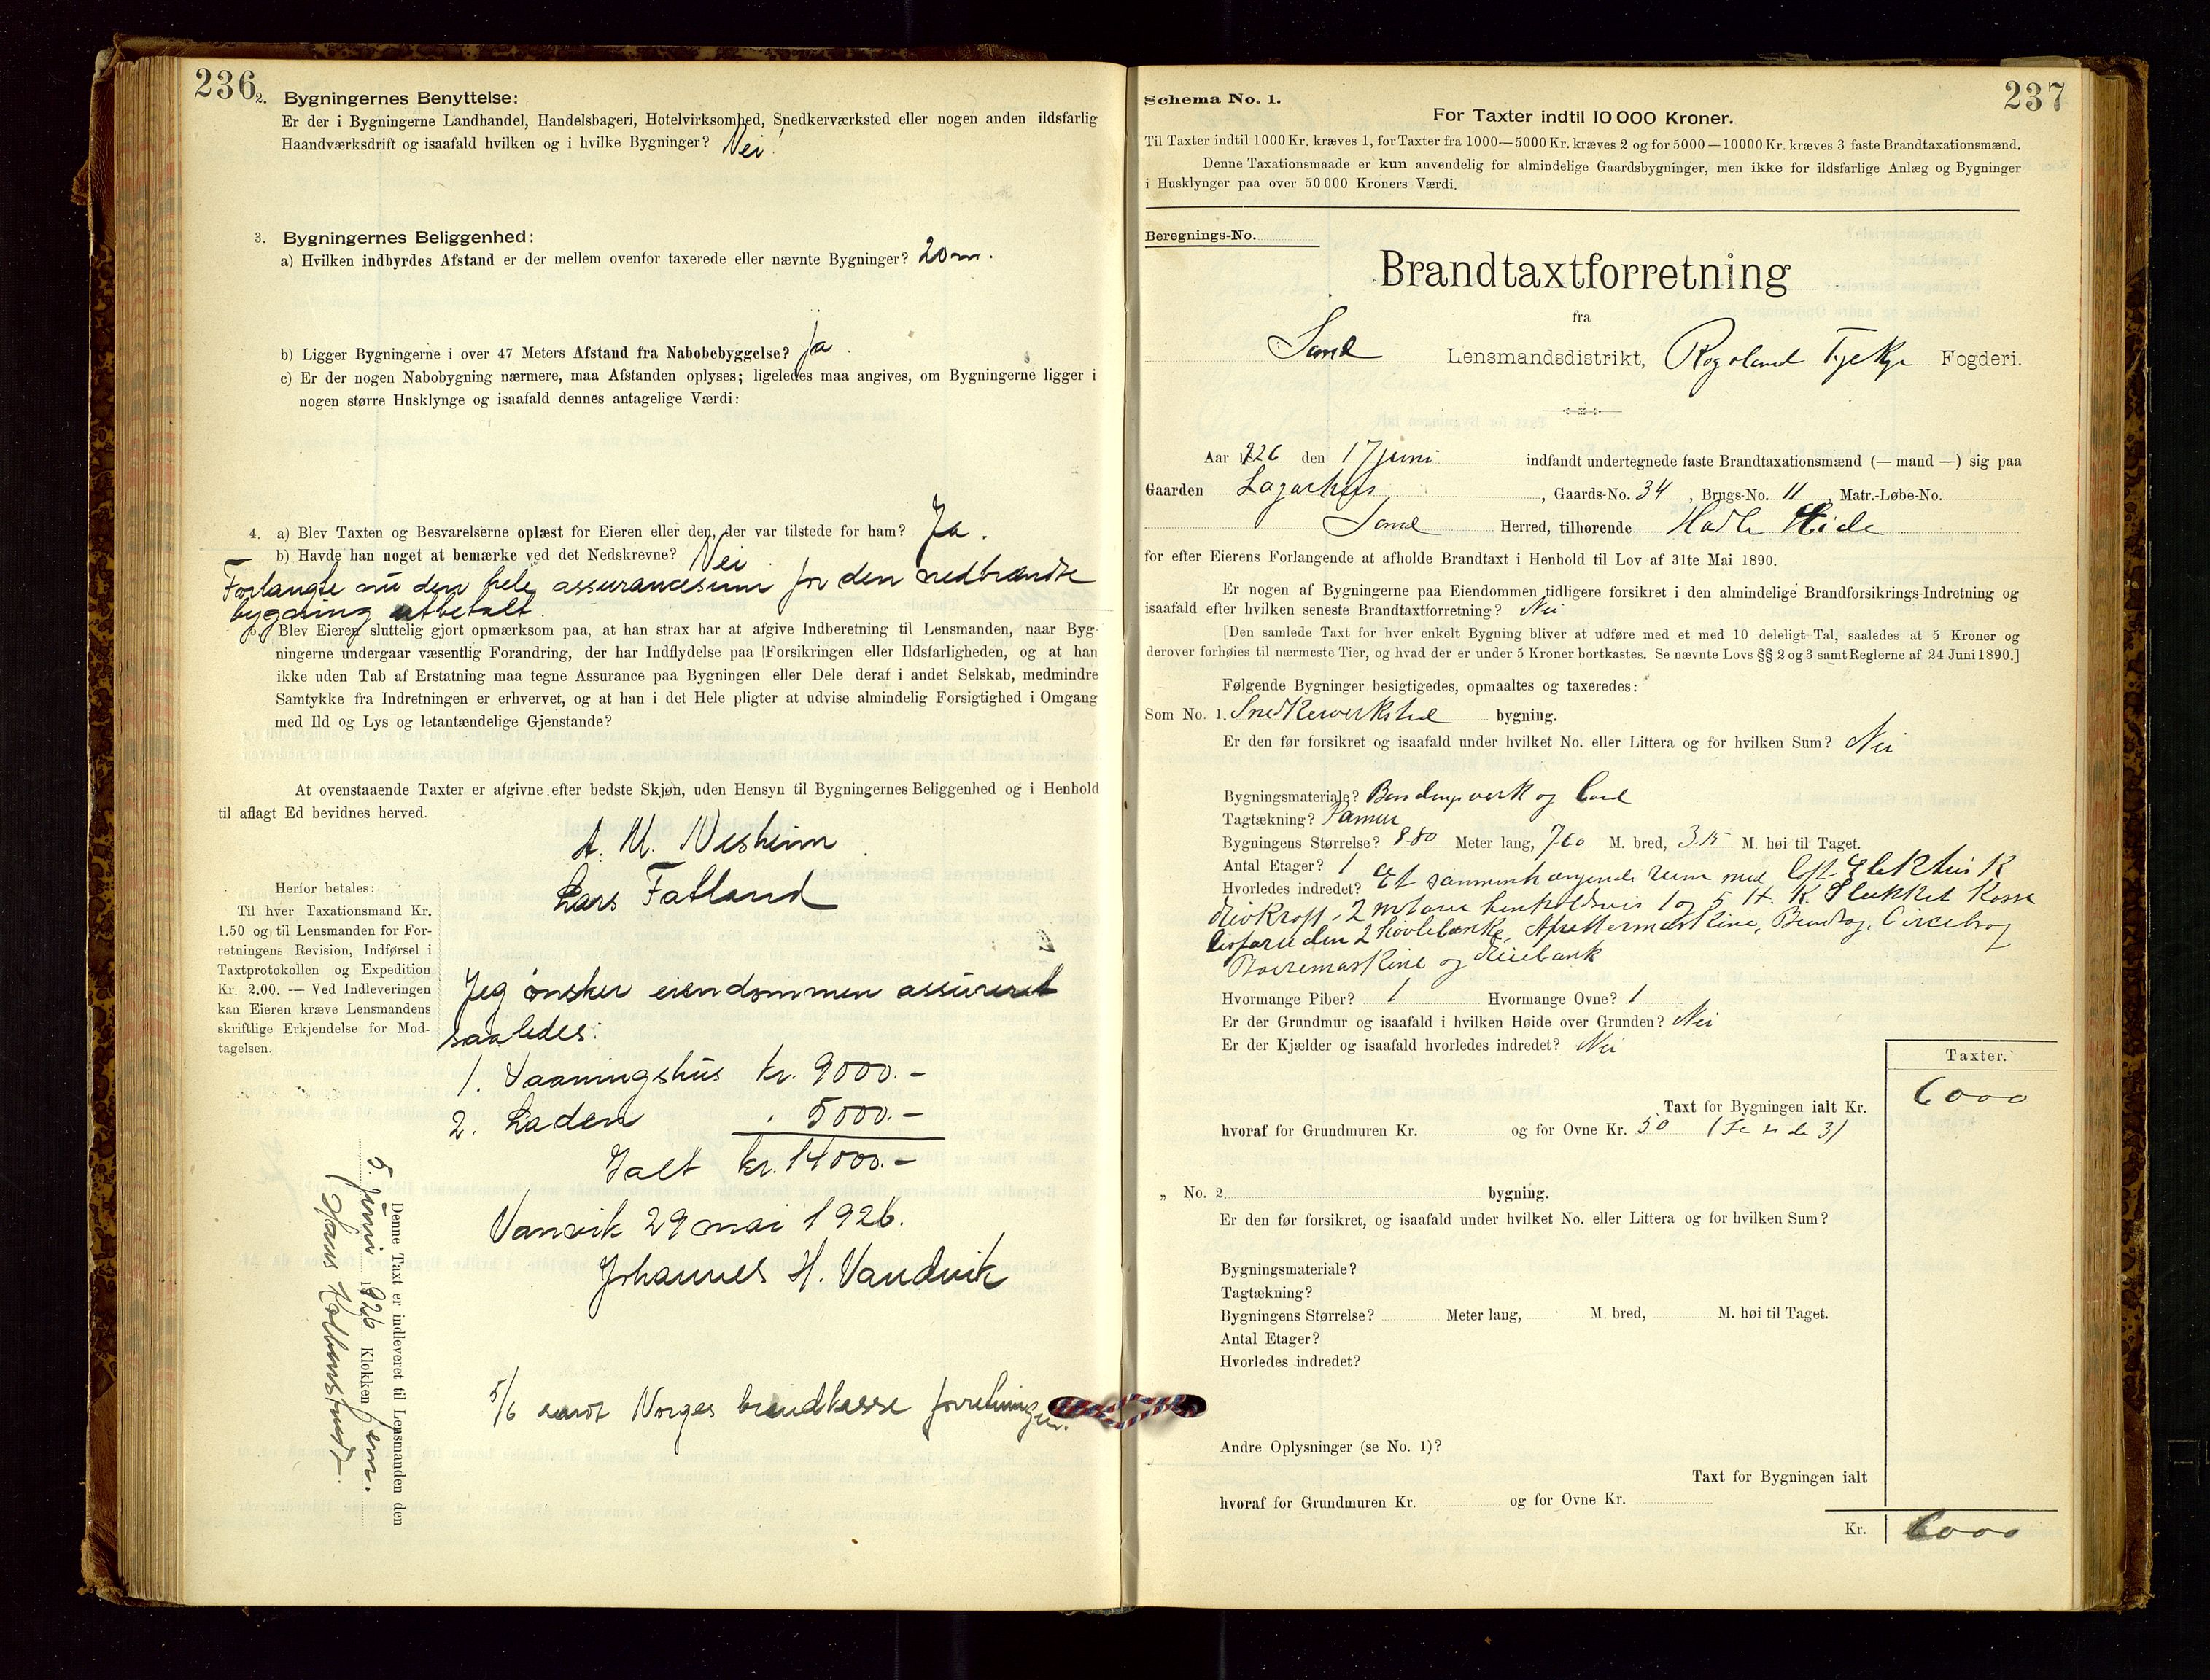 236
2. Bygningernes Benyttelse:
Er der i Bygningerne Landhandel, Handelsbageri, Hotelvirksomhed, Snedkerværksted eller nogen anden ildsfarlig
Haandværksdrift og isaafald hvilken og i hvilke Bygninger? Nei!
3. Bygningernes Beliggenhed:
a) Hvilken indbyrdes Afstand er der mellem ovenfor taxerede eller nævnte Bygninger? 20 m.
b) Ligger Bygningerne i over 47 Meters Afstand fra Nabobebyggelse? Ja
c) Er der nogen Nabobygning nærmere, maa Afstanden oplyses; ligeledes maa angives, om Bygningerne ligger i
nogen større Husklynge og isaafald dennes antagelige Værdi:
4. a) Blev Taxten og Besvarelserne oplæst for Eieren eller den, der var tilstede for ham? Ja.
b) Havde han noget at bemærke ved det Nedskrevne? Nei
Forlangte nu den hele assurancesum for den nedbrændte
bygning utbetalt.
5. Blev Eieren sluttelig gjort opmærksom paa, at han strax har at afgive Indberetning til Lensmanden, naar Byg-
ningerne undergaar væsentlig Forandring, der har Indflydelse paa Forsikringen eller Ildsfarligheden, og at han
ikke uden Tab af Erstatning maa tegne Assurance paa Bygningen eller Dele deraf i andet Selskab, medmindre
Samtykke fra Indretningen er erhvervet, og at han i det Hele pligter at udvise almindelig Forsigtighed i Omgang
med Ild og Lys og letantændelige Gjenstande?
At ovenstaaende Taxter er afgivne efter bedste Skjøn, uden Hensyn til Bygningernes Beliggenhed og i Henhold
til aflagt Ed bevidnes herved.
A. M. Nesheim
Lars Fatland
Herfor betales:
Til hver Taxationsmand Kr.
1.50 og til Lensmanden for For-
retningens Revision, Indførsel i
Taxtprotokollen og Expedition
Kr. 2.00. — Ved Indleveringen
kan Eieren kræve Lensmandens
skriftlige Erkjendelse for Mod-
tagelsen.
Jeg ønsker eiendommen assureret
saaledes:
1. Vaaningshus kr. 9000.-
2. Laden " 5000.-
Ialt kr. 14000.-
Vanvik 29 mai 1926.
Johannes H. Vandvik
Denne Taxt er indleveret til Lensmanden den
5 juni 1926 Klokken fem.
5/6 sendt Norges brandkasse forretningen.
237
Schema No. 1.
For Taxter indtil 10 000 Kroner.
Til Taxter indtil 1000 Kr. kræves 1, for Taxter fra 1000—5000 Kr. kræves 2 og for 5000—10000 Kr. kræves 3 faste Brandtaxationsmænd.
Denne Taxationsmaade er kun anvendelig for almindelige Gaardsbygninger, men ikke for ildsfarlige Anlæg og Bygninger
i Husklynger paa over 50 000 Kroners Værdi.
Beregnings-No.
Brandtaxtforretning
fra
Sand Lensmandsdistrikt, Rogaland Fogderi.
Aar 1926 den 17 juni indfandt undertegnede faste Brandtaxationsmænd (— mand —) sig paa
Gaarden , Gaards-No. 34 , Brugs-No. 11 , Matr.-Løbe-No.
Sand Herred, tilhørende Hadle Hide
for efter Eierens Forlangende at afholde Brandtaxt i Henhold til Lov af 31te Mai 1890.
Er nogen af Bygningerne paa Eiendommen tidligere forsikret i den almindelige Brandforsikrings-Indretning og
isaafald efter hvilken seneste Brandtaxtforretning? Nei
[Den samlede Taxt for hver enkelt Bygning bliver at udføre med et med 10 deleligt Tal, saaledes at 5 Kroner og
derover forhøies til nærmeste Tier, og hvad der er under 5 Kroner bortkastes. Se nævnte Lovs §§ 2 og 3 samt Reglerne af 24 Juni 1890.]
Følgende Bygninger besigtigedes, opmaaltes og taxeredes:
Som No. 1. Snedkerverksted bygning.
Er den før forsikret og isaafald under hvilket No. eller Littera og for hvilken Sum? Nei
Bygningsmateriale? Bindingsverk og bord
Tagtækning? Panner
Bygningens Størrelse? 8.80 Meter lang, 7.60 M. bred, 3.15 M. høi til Taget.
Antal Etager? 1
Hvorledes indredet? Et sammenhængende rum med loft. Elektrisk
drivkraft, 2 motorer henholdsvis 1 og 5 H. K.
desforuden 2 høvlebænke, Avrettermaskine, Baandsag, Circelsag
Boremaskine og dreiebænk
Hvormange Piber? 1 Hvormange Ovne? 1
Er der Grundmur og isaafald i hvilken Høide over Grunden? Nei
Er der Kjælder og isaafald hvorledes indredet? Nei
Taxter.
Taxt for Bygningen ialt Kr. 6000
hvoraf for Grundmuren Kr. og for Ovne Kr. 50 (Se side 3)
„ No. 2 bygning.
Er den før forsikret, og isaafald under hvilket No. eller Littera og for hvilken Sum?
Bygningsmateriale?
Tagtækning?
Bygningens Størrelse? Meter lang, M. bred, M. høi til Taget.
Antal Etager?
Hvorledes indredet?
Andre Oplysninger (se No. 1)?
Taxt for Bygningen ialt
hvoraf for Grundmuren Kr. og for Ovne Kr.
Kr. 6000